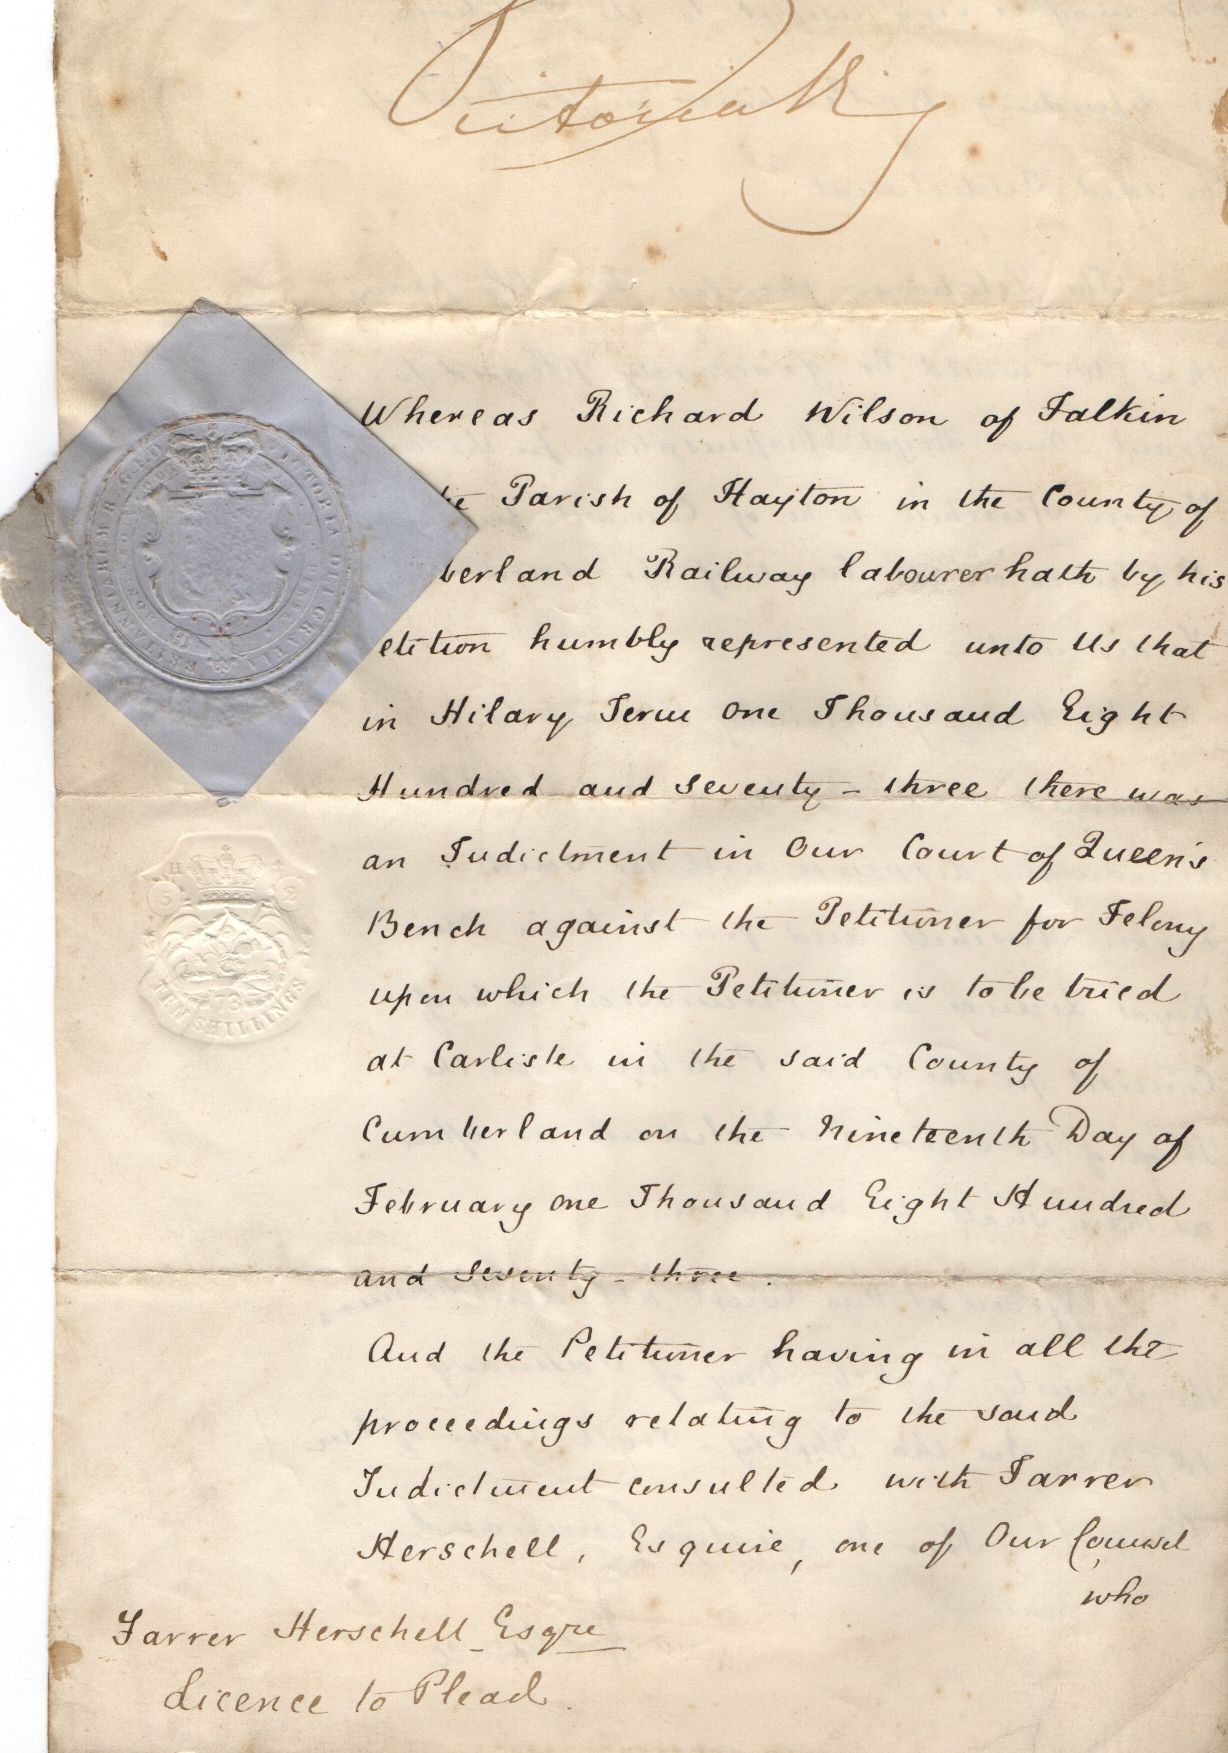 Victoria R
Whereas Richard Wilson of Talkin
Parish of Hayton in the County of
berland Railway labourer hath by his
etition humbly represented unto Us that
in Hilary Term One Thousand Eight
Hundred and seventy - three there was
an Indictment in Our Court of Queen's
Bench against the Petitioner for Felony
upon which the Petitioner is to be tried
at Carlisle in the said County of
Cumberland on the Nineteenth Day of
February One Thousand Eight Hundred
and Seventy - three.
And the Petitioner having in all the
proceedings relating to the said
Indictment consulted with Farrer
Herschell, Esquire, one of Our Counsel
who
Farrer Herschell Esqre
Licence to Plead.
TEN SHILLINGS